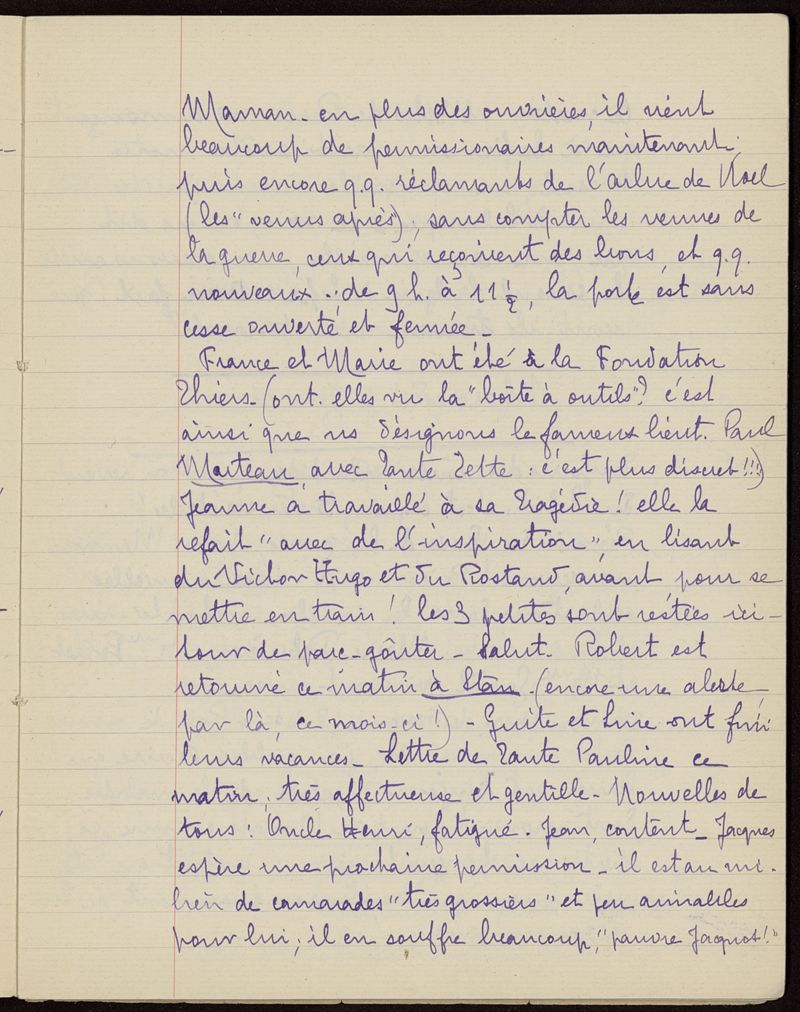 Maman. en plus des ouvrières, il vient
beaucoup de permissionaires maintenant ;
puis encore q.q. réclamants de l'arbre de Noël
(les "venus après") ; sans compter les veuves de
la guerre, ceux qui reçoivent des bons, et q.q.
nouveaux .; de 9 h. à 11 ½, la porte est sans
cesse ouverte et fermée _
France et Marie ont été à la Fondation
Thiers _ (ont-elles vu la "boîte à outils"? c'est
ainsi que ns désignons le fameux lieut. Paul
Marteau, avec Tante Zette : c'est plus discret !!!)
Jeanne a travaillé à sa Tragédie ! elle la
refait "avec de l'inspiration", en lisant
du Victor Hugo et du Rostand, avant pour se
mettre en train ! les 3 petites sont restées ici _
tour de parc _ goûter _ Salut. Robert est
retourné ce matin à Stan _ (encore une alerte,
par là, ce mois-ci !) _ Guite et Line ont fini
leurs vacances _ Lettre de Tante Pauline ce
matin ; très affectueuse et gentille _ Nouvelles de
tous : Oncle Henri, fatigué. Jean, content _ Jacques
espère une prochaine permission _ il est au mi-
lieu de camarades "très grossiers" et peu aimables
pour lui ; il en souffre beaucoup, "pauvre Jacquot !"